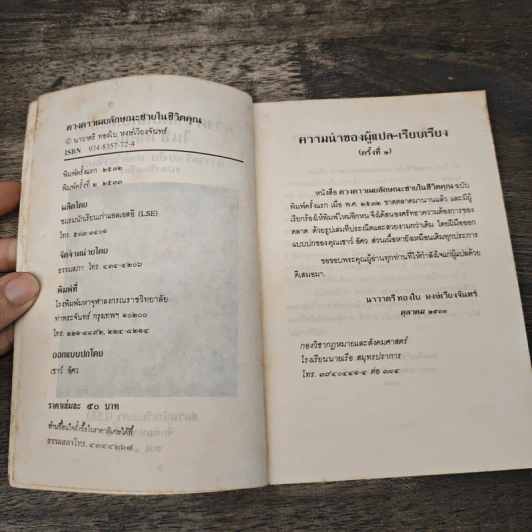 ดวงดาวเผยลักษณะชายในชีวิตคุณ
© นาวาตรี ทองใบ หงษ์เวียงจันทร์
ISBN 974-8357-72-4
พิมพ์ครั้งแรก ๒๕๓๒
พิมพ์ครั้งที่ ๒ ๒๕๓๓
ผลิตโดย
ชมรมนักเรียนเก่าแอลเอสอี (LSE)
โทร. ๕๑๓-๓๕๐๑
จัดจำหน่ายโดย
ธรรมสภา โทร. ๔๓๔-๔๒๐๖
พิมพ์ที่
โรงพิมพ์มหาจุฬาลงกรณราชวิทยาลัย
ท่าพระจันทร์ กรุงเทพฯ ๑๐๒๐๐
โทร. ๒๒๑-๘๘๙๒, ๒๒๔-๘๒๑๔
ออกแบบปกโดย
เชาว์ อัศว
ราคาเล่มละ ๕๐ บาท
ท่านที่สนใจสั่งซื้อในราคาพิเศษได้ที่
ธรรมสภาโทร. ๔๓๔๔๒๖๗
ความนำของผู้แปล-เรียบเรียง
(ครั้งที่ ๒)
หนังสือ ดวงดาวเผยลักษณะชายในชีวิตคุณ ฉบับ
พิมพ์ครั้งแรก เมื่อ พ.ศ. ๒๕๓๒ ขาดตลาดมานานแล้ว และมีผู้
เรียกร้องให้พิมพ์ใหม่อีกหน จึงได้สนองศรัทธาความต้องการของ
ตลาด ด้วยรูปเล่มที่ประณีตและสวยงามกว่าเดิม โดยฝีมือออก
แบบปกของคุณเชาว์ อัศว ส่วนเนื้อหายังเหมือนเดิมทุกประการ
ขอขอบพระคุณผู้อ่านทุกท่านที่ให้กำลังใจแก่ผู้แปลด้วย
ดีเสมอมา.
นาวาตรี ทองใบ หงษ์เวียงจันทร์
ตุลาคม ๒๕๓๓
กองวิชากฎหมายและสังคมศาสตร์
โรงเรียนนายเรือ สมุทรปราการ
โทร. ๓๙๔๐๔๔๑-๔ ต่อ ๓๘๔